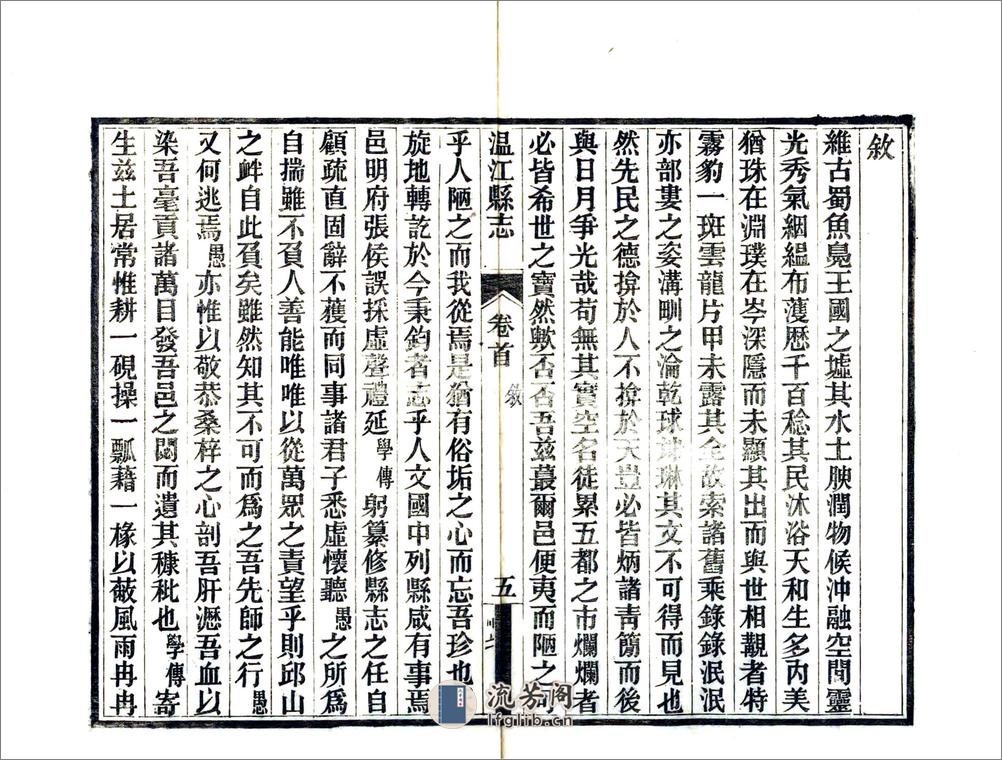 敘
維古蜀魚鳧王國之墟其水土腴潤物候沖融空間靈
光秀氣絪縕布濩歷千百稔其民沐浴天和生多內美
猶珠在淵璞在岑深隱而未顯其出而與世相觀者特
霧豹一斑雲龍片甲未露其全故索諸舊乘錄錄泯泯
亦部婁之姿溝甽之淪乾球坤琳其文不可得而見也
然先民之德揜於人不揜於天豈必皆炳諸靑簡而後
與日月爭光哉苟無其實空名徒累五都之市爛爛者
必皆希世之寶然歟否否吾兹蕞爾邑便夷而陋之可
温江縣志
卷首
敘
五
乎人陋之而我從焉是猶有俗垢之心而忘吾珍也
旋地轉訖於今秉鈞者志乎人文國中列縣咸有事焉
邑明府張侯誤採虛聲禮延學傳躬纂修縣志之任自
顧疏直固辭不獲而同事諸君子悉虛懷聽愚之所爲
自揣雖不負人善能唯唯以從萬眾之責望乎則邱山
之衅自此負矣雖然知其不可而爲之吾先師之行愚
又何逃焉愚亦惟以敬恭桑梓之心剖吾肝瀝吾血以
染吾毫貢諸萬目發吾邑之閟而遺其糠秕也學傳寄
生兹土居常惟耕一硯操一瓢藉一椽以蔽風雨冉冉
流芳阁
lfglib.cn